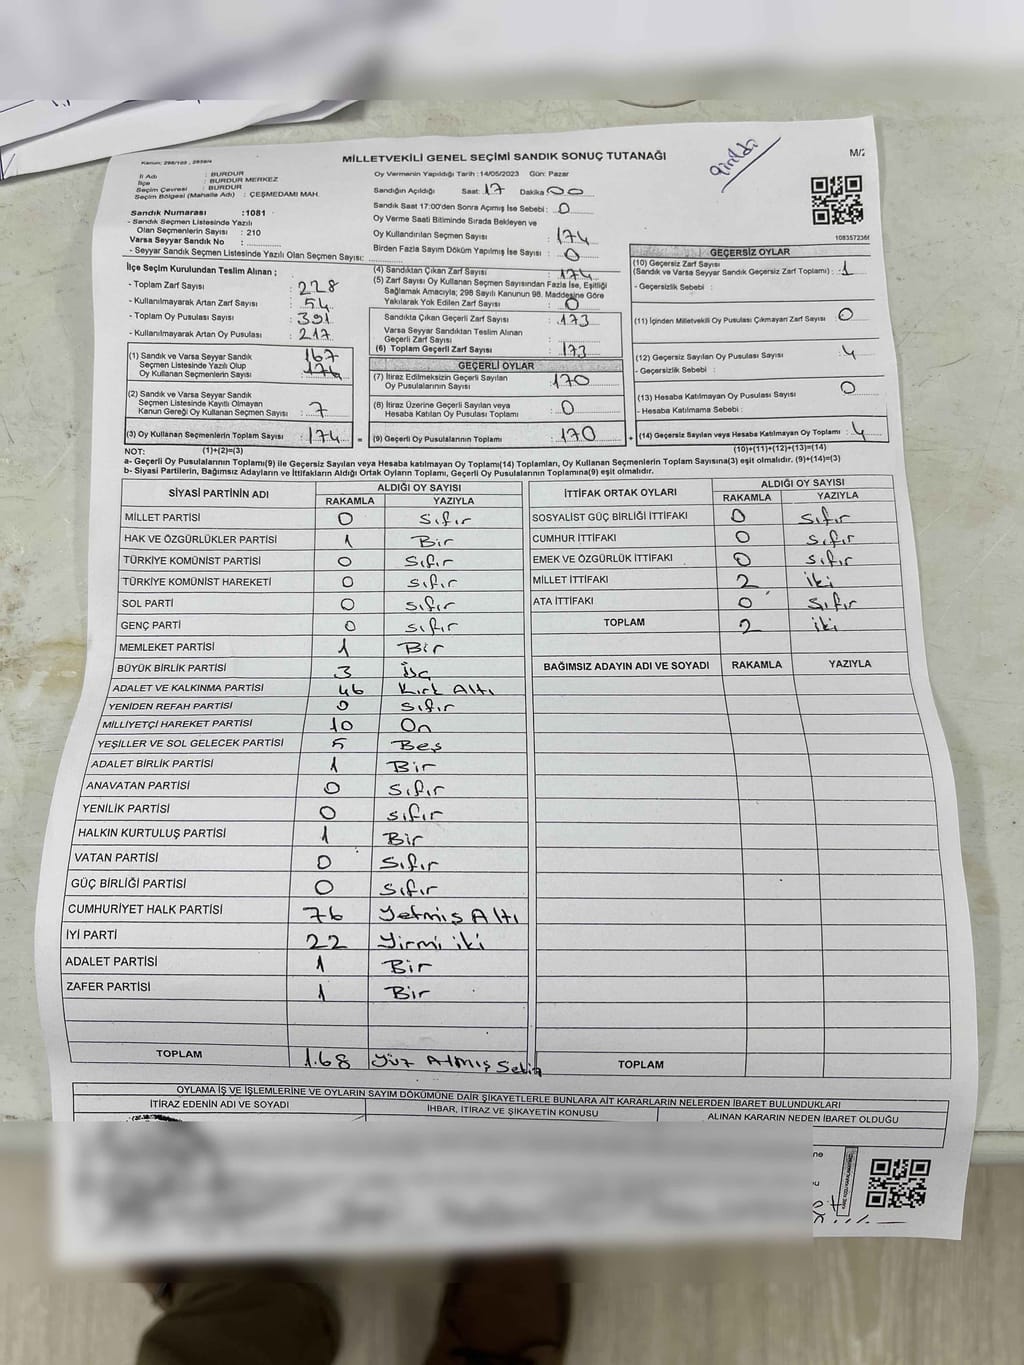 Kanun: 298/103 , 2839/4
MİLLETVEKİLİ GENEL SEÇİMİ SANDIK SONUÇ TUTANAĞI
girildi
M/2
İl Adı : BURDUR
İlçe : BURDUR MERKEZ
Seçim Çevresi : BURDUR
Seçim Bölgesi (Mahalle Adı) : ÇEŞMEDAMI MAH.
Sandık Numarası :1081
- Sandık Seçmen Listesinde Yazılı
Olan Seçmenlerin Sayısı : 210
Varsa Seyyar Sandık No :
- Seyyar Sandık Seçmen Listesinde Yazılı Olan Seçmen Sayısı:
Oy Vermenin Yapıldığı Tarih :14/05/2023 Gün: Pazar
Sandığın Açıldığı Saat: 17 Dakika 00
Sandık Saat 17:00'den Sonra Açımış İse Sebebi : 0
Oy Verme Saati Bitiminde Sırada Bekleyen ve
Oy Kullandırılan Seçmen Sayısı : 174
Birden Fazla Sayım Döküm Yapılmış İse Sayısı : 0
İlçe Seçim Kurulundan Teslim Alınan ;
- Toplam Zarf Sayısı : 228
- Kullanılmayarak Artan Zarf Sayısı : 54
- Toplam Oy Pusulası Sayısı : 391
- Kullanılmayarak Artan Oy Pusulası : 217
(1) Sandık ve Varsa Seyyar Sandık 167
Seçmen Listesinde Yazılı Olup
Oy Kullanan Seçmenlerin Sayısı
(2) Sandık ve Varsa Seyyar Sandık
Seçmen Listesinde Kayıtlı Olmayan
Kanun Gereği Oy Kullanan Seçmen Sayısı : 7
(3) Oy Kullanan Seçmenlerin Toplam Sayısı : 174 =
(4) Sandıktan Çıkan Zarf Sayısı : 174
(5) Zarf Sayısı Oy Kullanan Seçmen Sayısından Fazla İse, Eşitliği
Sağlamak Amacıyla; 298 Sayılı Kanunun 98. Maddesine Göre
Yakılarak Yok Edilen Zarf Sayısı : 0
Sandıkta Çıkan Geçerli Zarf Sayısı : 173
Varsa Seyyar Sandıktan Teslim Alınan
Geçerli Zarf Sayısı :
(6) Toplam Geçerli Zarf Sayısı : 173
GEÇERLİ OYLAR
(7) İtiraz Edilmeksizin Geçerli Sayılan
Oy Pusulalarının Sayısı : 170
(8) İtiraz Üzerine Geçerli Sayılan veya
Hesaba Katılan Oy Pusulası Toplamı : 0
(9) Geçerli Oy Pusulalarının Toplamı : 170 +
108357236
GEÇERSİZ OYLAR
(10) Geçersiz Zarf Sayısı
(Sandık ve Varsa Seyyar Sandık Geçersiz Zarf Toplamı) : 1
- Geçersizlik Sebebi :
(11) İçinden Milletvekili Oy Pusulası Çıkmayan Zarf Sayısı : 0
(12) Geçersiz Sayılan Oy Pusulası Sayısı : 4
- Geçersizlik Sebebi :
(13) Hesaba Katılmayan Oy Pusulası Sayısı : 0
- Hesaba Katılmama Sebebi :
(14) Geçersiz Sayılan veya Hesaba Katılmayan Oy Toplamı : 4
NOT: (1)+(2)=(3) (10)+(11)+(12)+(13)=(14)
a- Geçerli Oy Pusulalarının Toplamı(9) ile Geçersiz Sayılan veya Hesaba katılmayan Oy Toplamı(14) Toplamları, Oy Kullanan Seçmenlerin Toplam Sayısına(3) eşit olmalıdır. (9)+(14)=(3)
b- Siyasi Partilerin, Bağımsız Adayların ve İttifakların Aldığı Ortak Oyların Toplamı, Geçerli Oy Pusulalarının Toplamına(9) eşit olmalıdır.
SİYASİ PARTİNİN ADI ALDIĞI OY SAYISI
RAKAMLA YAZIYLA
MİLLET PARTİSİ 0 Sıfır
HAK VE ÖZGÜRLÜKLER PARTİSİ 1 Bir
TÜRKİYE KOMÜNİST PARTİSİ 0 Sıfır
TÜRKİYE KOMÜNİST HAREKETİ 0 sıfır
SOL PARTİ 0 sıfır
GENÇ PARTİ 0 sıfır
MEMLEKET PARTİSİ 1 Bir
BÜYÜK BİRLİK PARTİSİ 3 Üç
ADALET VE KALKINMA PARTİSİ 46 Kırk Altı
YENİDEN REFAH PARTİSİ 0 sıfır
MİLLİYETÇİ HAREKET PARTİSİ 10 On
YEŞİLLER VE SOL GELECEK PARTİSİ 5 Beş
ADALET BİRLİK PARTİSİ 1 Bir
ANAVATAN PARTİSİ 0 Sıfır
YENİLİK PARTİSİ 0 sıfır
HALKIN KURTULUŞ PARTİSİ 1 Bir
VATAN PARTİSİ 0 Sıfır
GÜÇ BİRLİĞİ PARTİSİ 0 sıfır
CUMHURİYET HALK PARTİSİ 76 Yetmiş Altı
İYİ PARTİ 22 Yirmi iki
ADALET PARTİSİ 1 Bir
ZAFER PARTİSİ 1 Bir
TOPLAM 168 Yüz Atmış Sekiz
İTTİFAK ORTAK OYLARI ALDIĞI OY SAYISI
RAKAMLA YAZIYLA
SOSYALİST GÜÇ BİRLİĞİ İTTİFAKI 0 sıfır
CUMHUR İTTİFAKI 0 sıfır
EMEK VE ÖZGÜRLÜK İTTİFAKI 0 sıfır
MİLLET İTTİFAKI 2 iki
ATA İTTİFAKI 0 Sıfır
TOPLAM 2 iki
BAĞIMSIZ ADAYIN ADI VE SOYADI RAKAMLA YAZIYLA
TOPLAM
OYLAMA İŞ VE İŞLEMLERİNE VE OYLARIN SAYIM DÖKÜMÜNE DAİR ŞİKAYETLERLE BUNLARA AİT KARARLARIN NELERDEN İBARET BULUNDUKLARI
İTİRAZ EDENİN ADI VE SOYADI İHBAR, İTİRAZ VE ŞİKAYETİN KONUSU ALINAN KARARIN NEDEN İBARET OLDUĞU